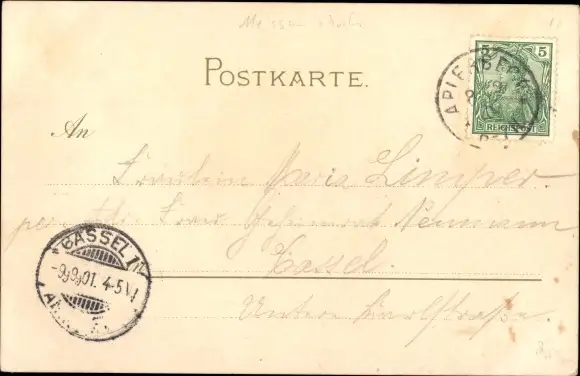 POSTKARTE.
5 5
APLERBECK
REICHSPOST
An
Fräulein Maria Limper.
per Frau Geheimrat Neumann
Cassel.
Untere Karlstraße.
CASSEL 1
-9.9.01. 4-5